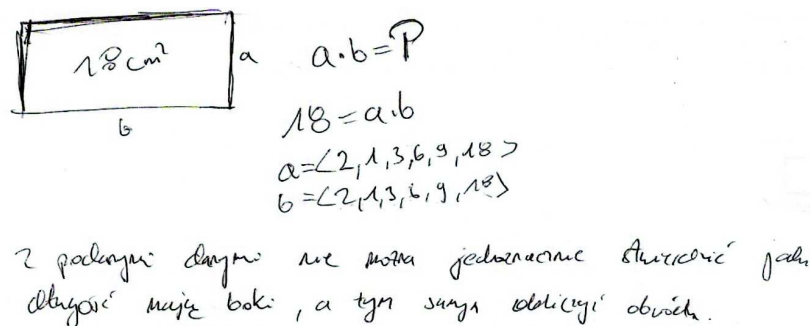 18 cm²
a
b
a·b=P
18=a·b
a=<2,1,3,6,9,18>
b=<2,1,3,6,9,18>
Z podanymi danymi nie można jednoznacznie stwierdzić jaką
długość mają boki, a tym samym obliczyć obwodu.